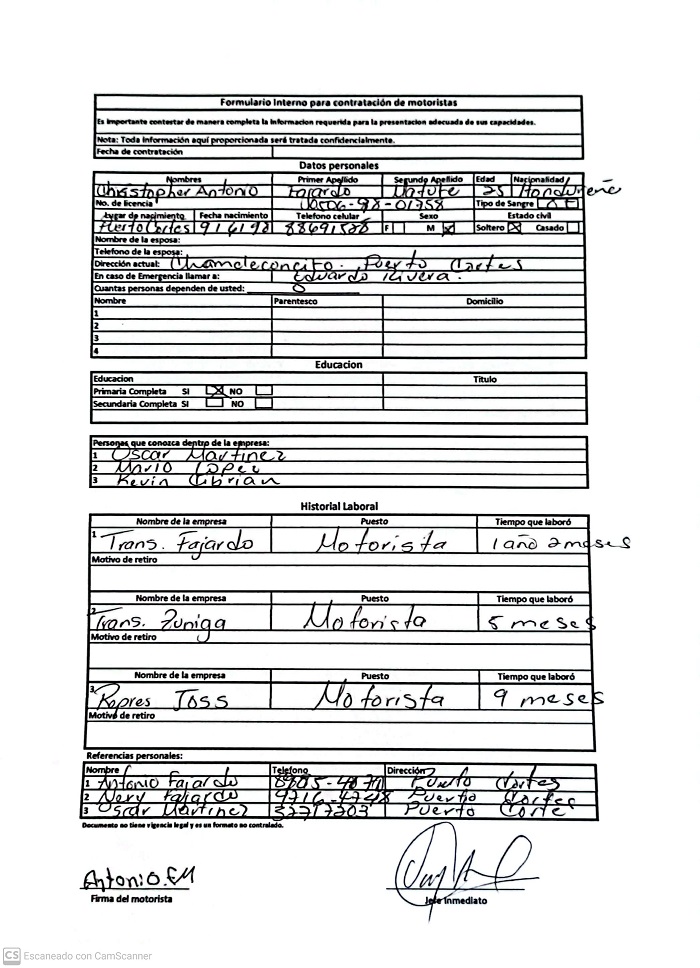 Formulario Interno para contratación de motoristas
Es importante contestar de manera completa la informacion requerida para la presentacion adecuada de sus capacidades.
Nota: Toda información aquí proporcionada será tratada confidencialmente.
Fecha de contratación
Datos personales
Nombres Primer Apellido Segundo Apellido Edad Nacionalidad
Christopher Antonio Fajardo Matute 25 Hondureño
No. de licencia 0506-98-01758 Tipo de Sangre
Lugar de nacimiento Fecha nacimiento Telefono celular Sexo Estado civil
Puerto Cortes 9/6/98 F M X Soltero X Casado
Nombre de la esposa:
Telefono de la esposa:
Dirección actual: Chameleconcito. Puerto Cortes
En caso de Emergencia llamar a: Eduardo Rivera.
Cuantas personas dependen de usted: 0
Nombre Parentesco Domicilio
1
2
3
4
Educacion
Educacion Titulo
Primaria Completa SI X NO
Secundaria Completa SI NO
Personas que conozca dentro de la empresa:
1 Oscar Martinez
2 Mario Lopez
3 Kevin Cibrian
Historial Laboral
Nombre de la empresa Puesto Tiempo que laboró
1 Trans. Fajardo Motorista 1 año 2 meses
Motivo de retiro
Nombre de la empresa Puesto Tiempo que laboró
2 Trans. Zuniga Motorista 5 meses
Motivo de retiro
Nombre de la empresa Puesto Tiempo que laboró
3 Repres Joss Motorista 9 meses
Motivo de retiro
Referencias personales:
Nombre Telefono Dirección
1 Antonio Fajardo Puerto Cortes
2 Nery Fajardo 9716-4748 Puerto Cortes
3 Oscar Martinez Puerto Corte
Documento no tiene vigencia legal y es un formato no controlado.
Antonio.FM
Firma del motorista Jefe Inmediato
CS Escaneado con CamScanner